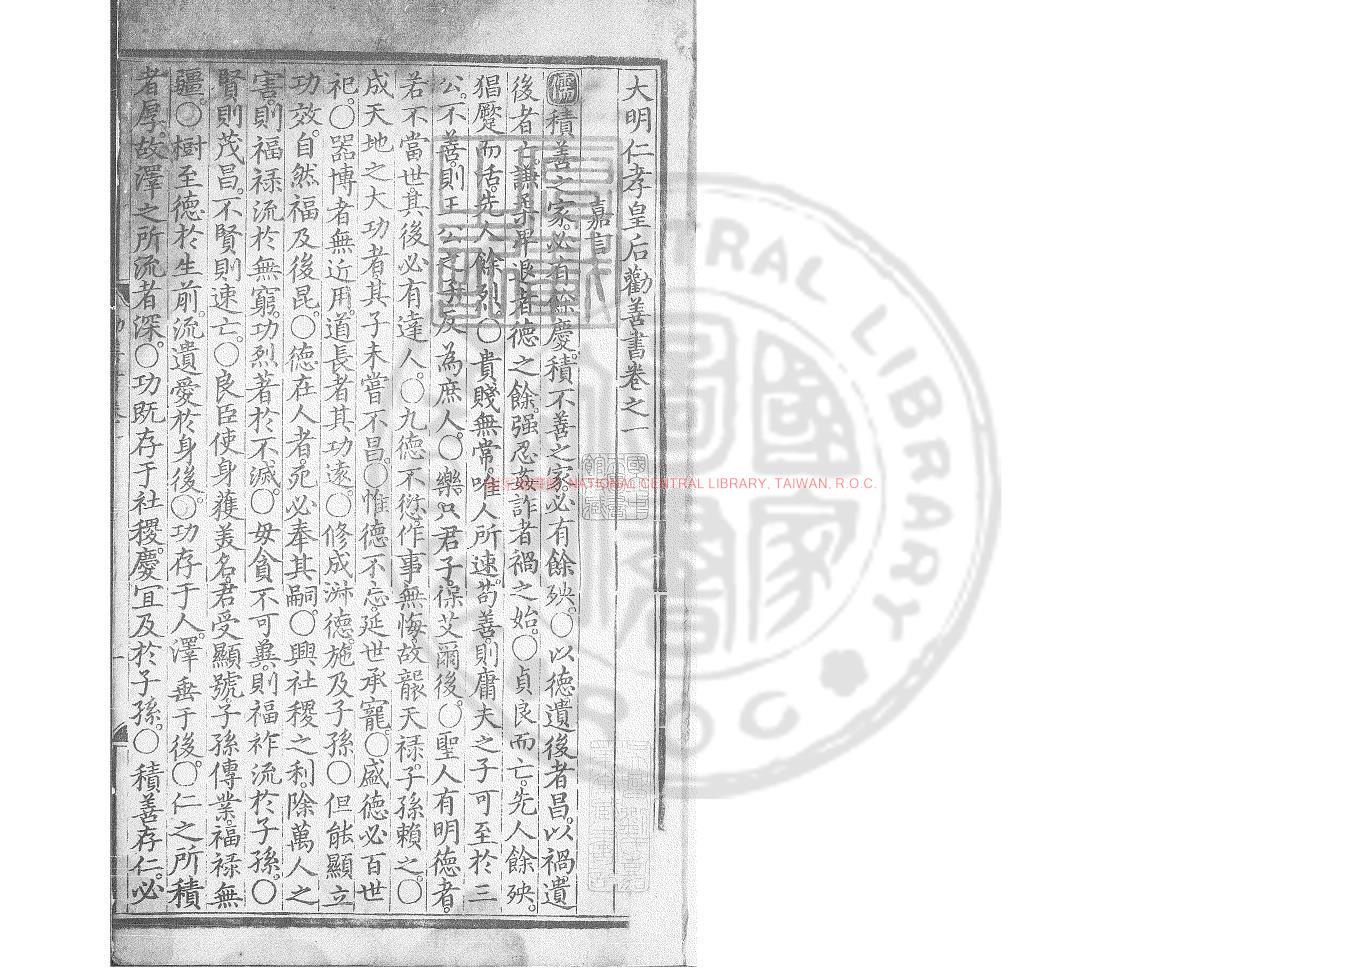 大明仁孝皇后勸善書卷之一
嘉言
儒積善之家。必有餘慶。積不善之家。必有餘殃。○以德遺後者昌。以禍遺
後者亡。謙柔卑退者德之餘。强忍姦詐者禍之始。○貞良而亡。先人餘殃。
猖蹷而活。先人餘烈。○貴賤無常。唯人所速。苟善。則庸夫之子可至於三
公。不善。則王公之子反為庶人。○樂只君子。保艾爾後。○聖人有明德者。
若不當世其後必有達人。○九德不愆。作事無悔。故襲天祿。子孫賴之。○
成天地之大功者其子未嘗不昌。○惟德不忘。延世承寵。○盛德必百世
祀。○器博者無近用。道長者其功遠。○修成淋德。施及子孫○但能顯立
功效。自然福及後昆。○德在人者。死必奉其嗣。○興社稷之利。除萬人之
害。則福祿流於無窮。功烈著於不滅。○毋貪不可冀。則福祚流於子孫。○
賢則茂昌。不賢則速亡。○良臣使身獲美名。君受顯號。子孫傳業。福祿無
疆。○樹至德於生前。流遺愛於身後。○功存于人。澤垂于後。○仁之所積
者厚。故澤之所流者深。○功既存于社稷。慶宜及於子孫。○積善存仁。必
NATIONAL CENTRAL LIBRARY, TAIWAN, R.O.C.